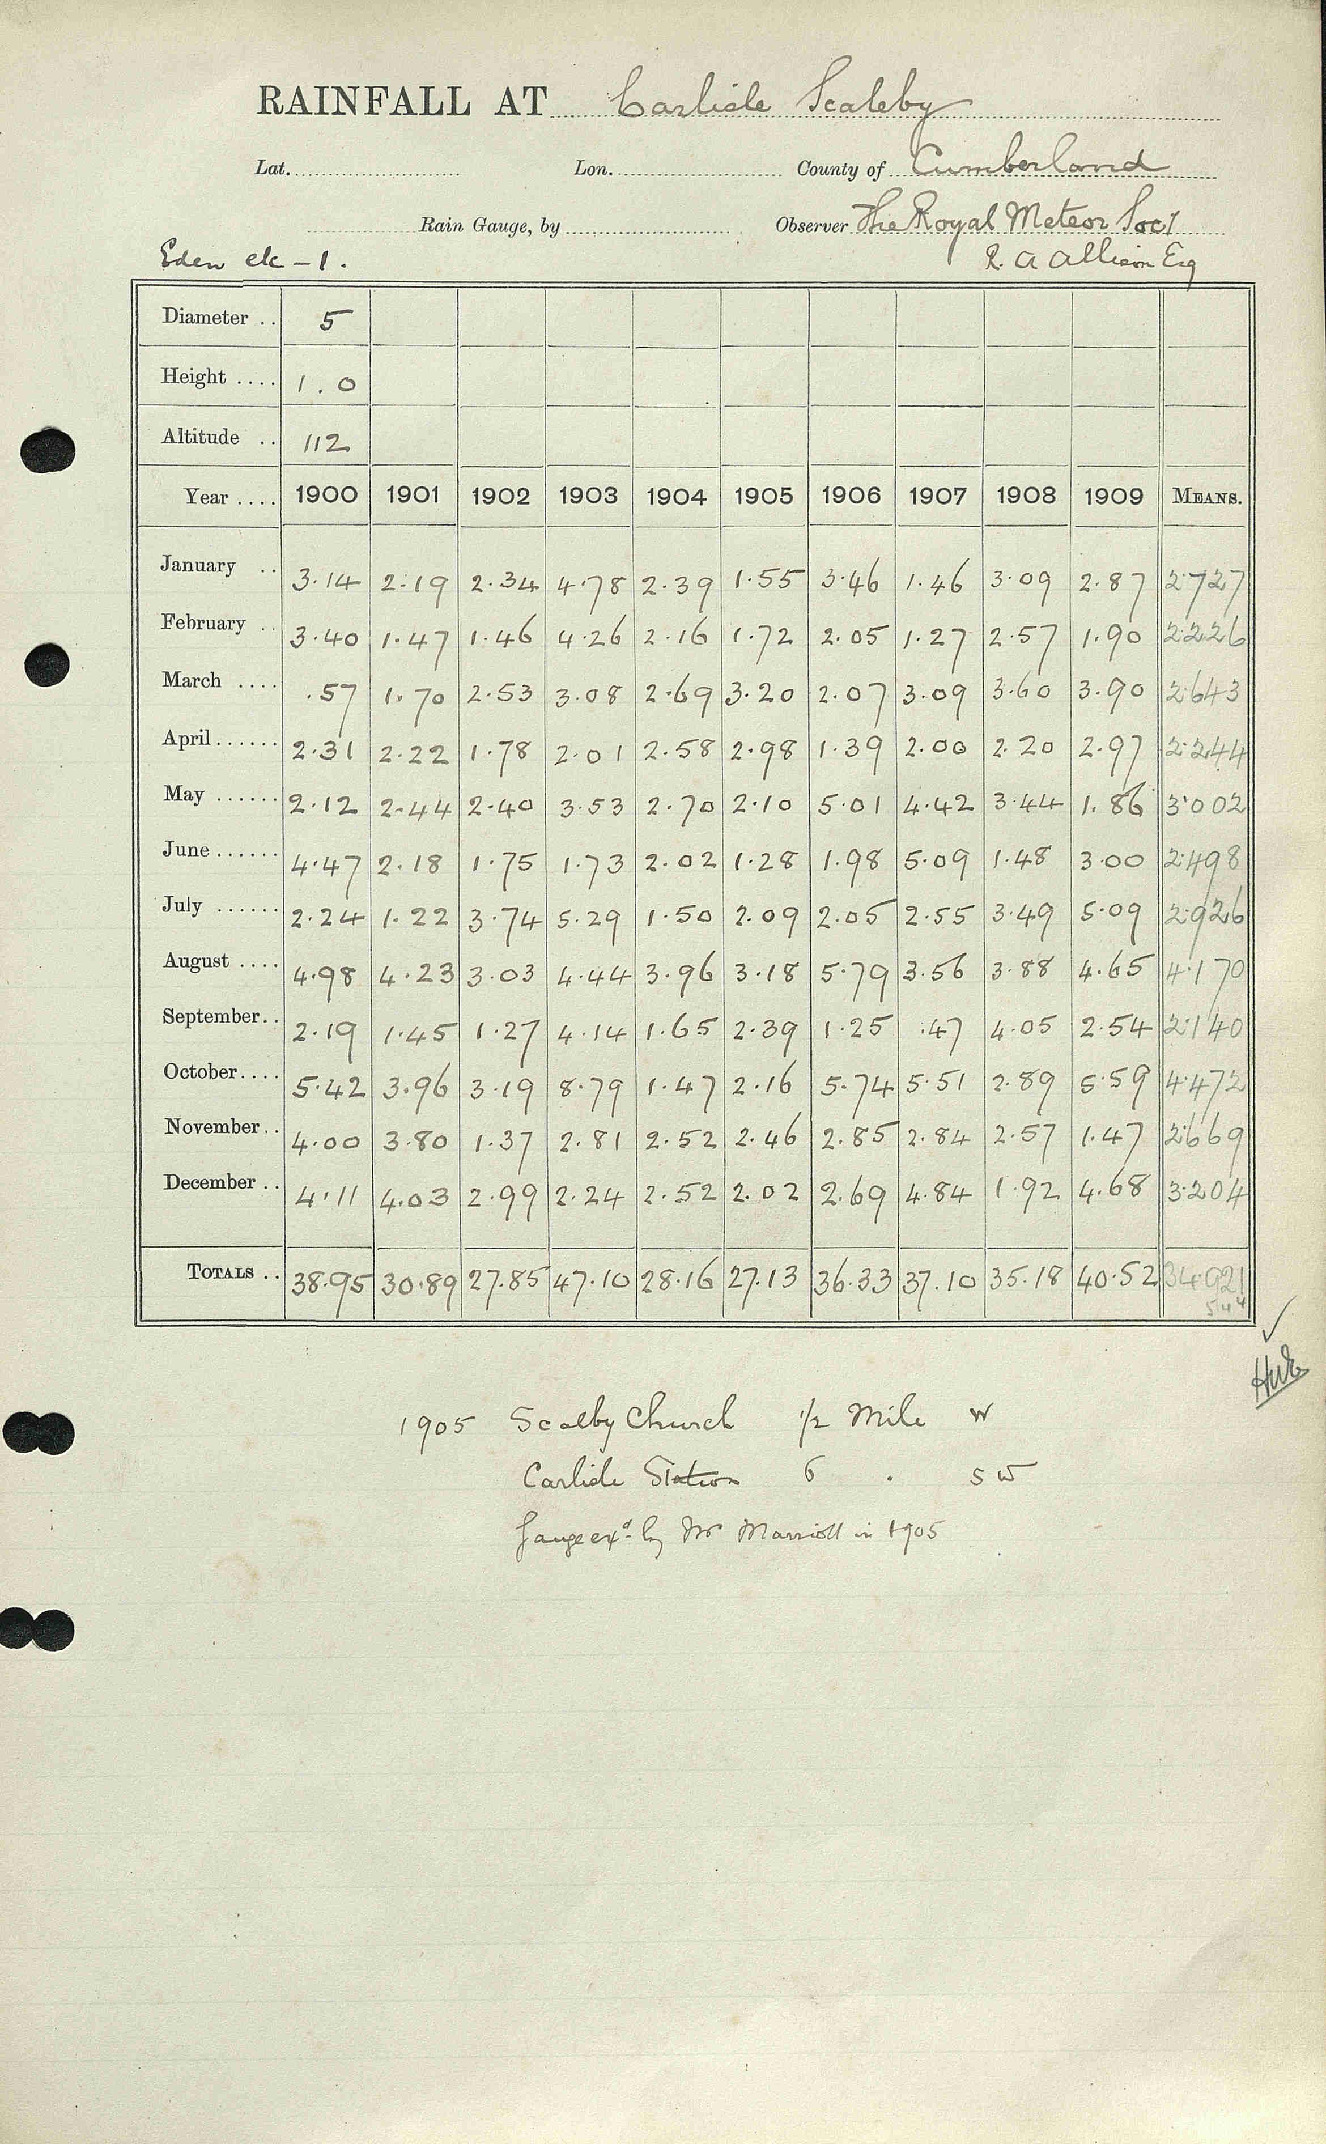 RAINFALL AT Carlisle Scaleby
Lat. Lon. County of Cumberland
Rain Gauge, by Observer The Royal Meteor Socy
Eden etc - 1. R. A Allison Esq
Diameter .. 5
Height .... 1.0
Altitude .. 112
Year .... 1900 1901 1902 1903 1904 1905 1906 1907 1908 1909 MEANS.
January .. 3.14 2.19 2.34 4.78 2.39 1.55 3.46 1.46 3.09 2.87 2.727
February .. 3.40 1.47 1.46 4.26 2.16 1.72 2.05 1.27 2.57 1.90 2.226
March .... .57 1.70 2.53 3.08 2.69 3.20 2.07 3.09 3.60 3.90 2.643
April...... 2.31 2.22 1.78 2.01 2.58 2.98 1.39 2.00 2.20 2.97 2.244
May ...... 2.12 2.44 2.40 3.53 2.70 2.10 5.01 4.42 3.44 1.86 3.002
June...... 4.47 2.18 1.75 1.73 2.02 1.28 1.98 5.09 1.48 3.00 2.498
July ...... 2.24 1.22 3.74 5.29 1.50 2.09 2.05 2.55 3.49 5.09 2.926
August .... 4.98 4.23 3.03 4.44 3.96 3.18 5.79 3.56 3.88 4.65 4.170
September.. 2.19 1.45 1.27 4.14 1.65 2.39 1.25 .47 4.05 2.54 2.140
October.... 5.42 3.96 3.19 8.79 1.47 2.16 5.74 5.51 2.89 5.59 4.472
November.. 4.00 3.80 1.37 2.81 2.52 2.46 2.85 2.84 2.57 1.47 2.669
December .. 4.11 4.03 2.99 2.24 2.52 2.02 2.69 4.84 1.92 4.68 3.204
TOTALS .. 38.95 30.89 27.85 47.10 28.16 27.13 36.33 37.10 35.18 40.52 34.921
1905 Scalby Church 1/2 Mile W
Carlisle Station 6 . SW
Gauge exd by Mr Marriott in 1905